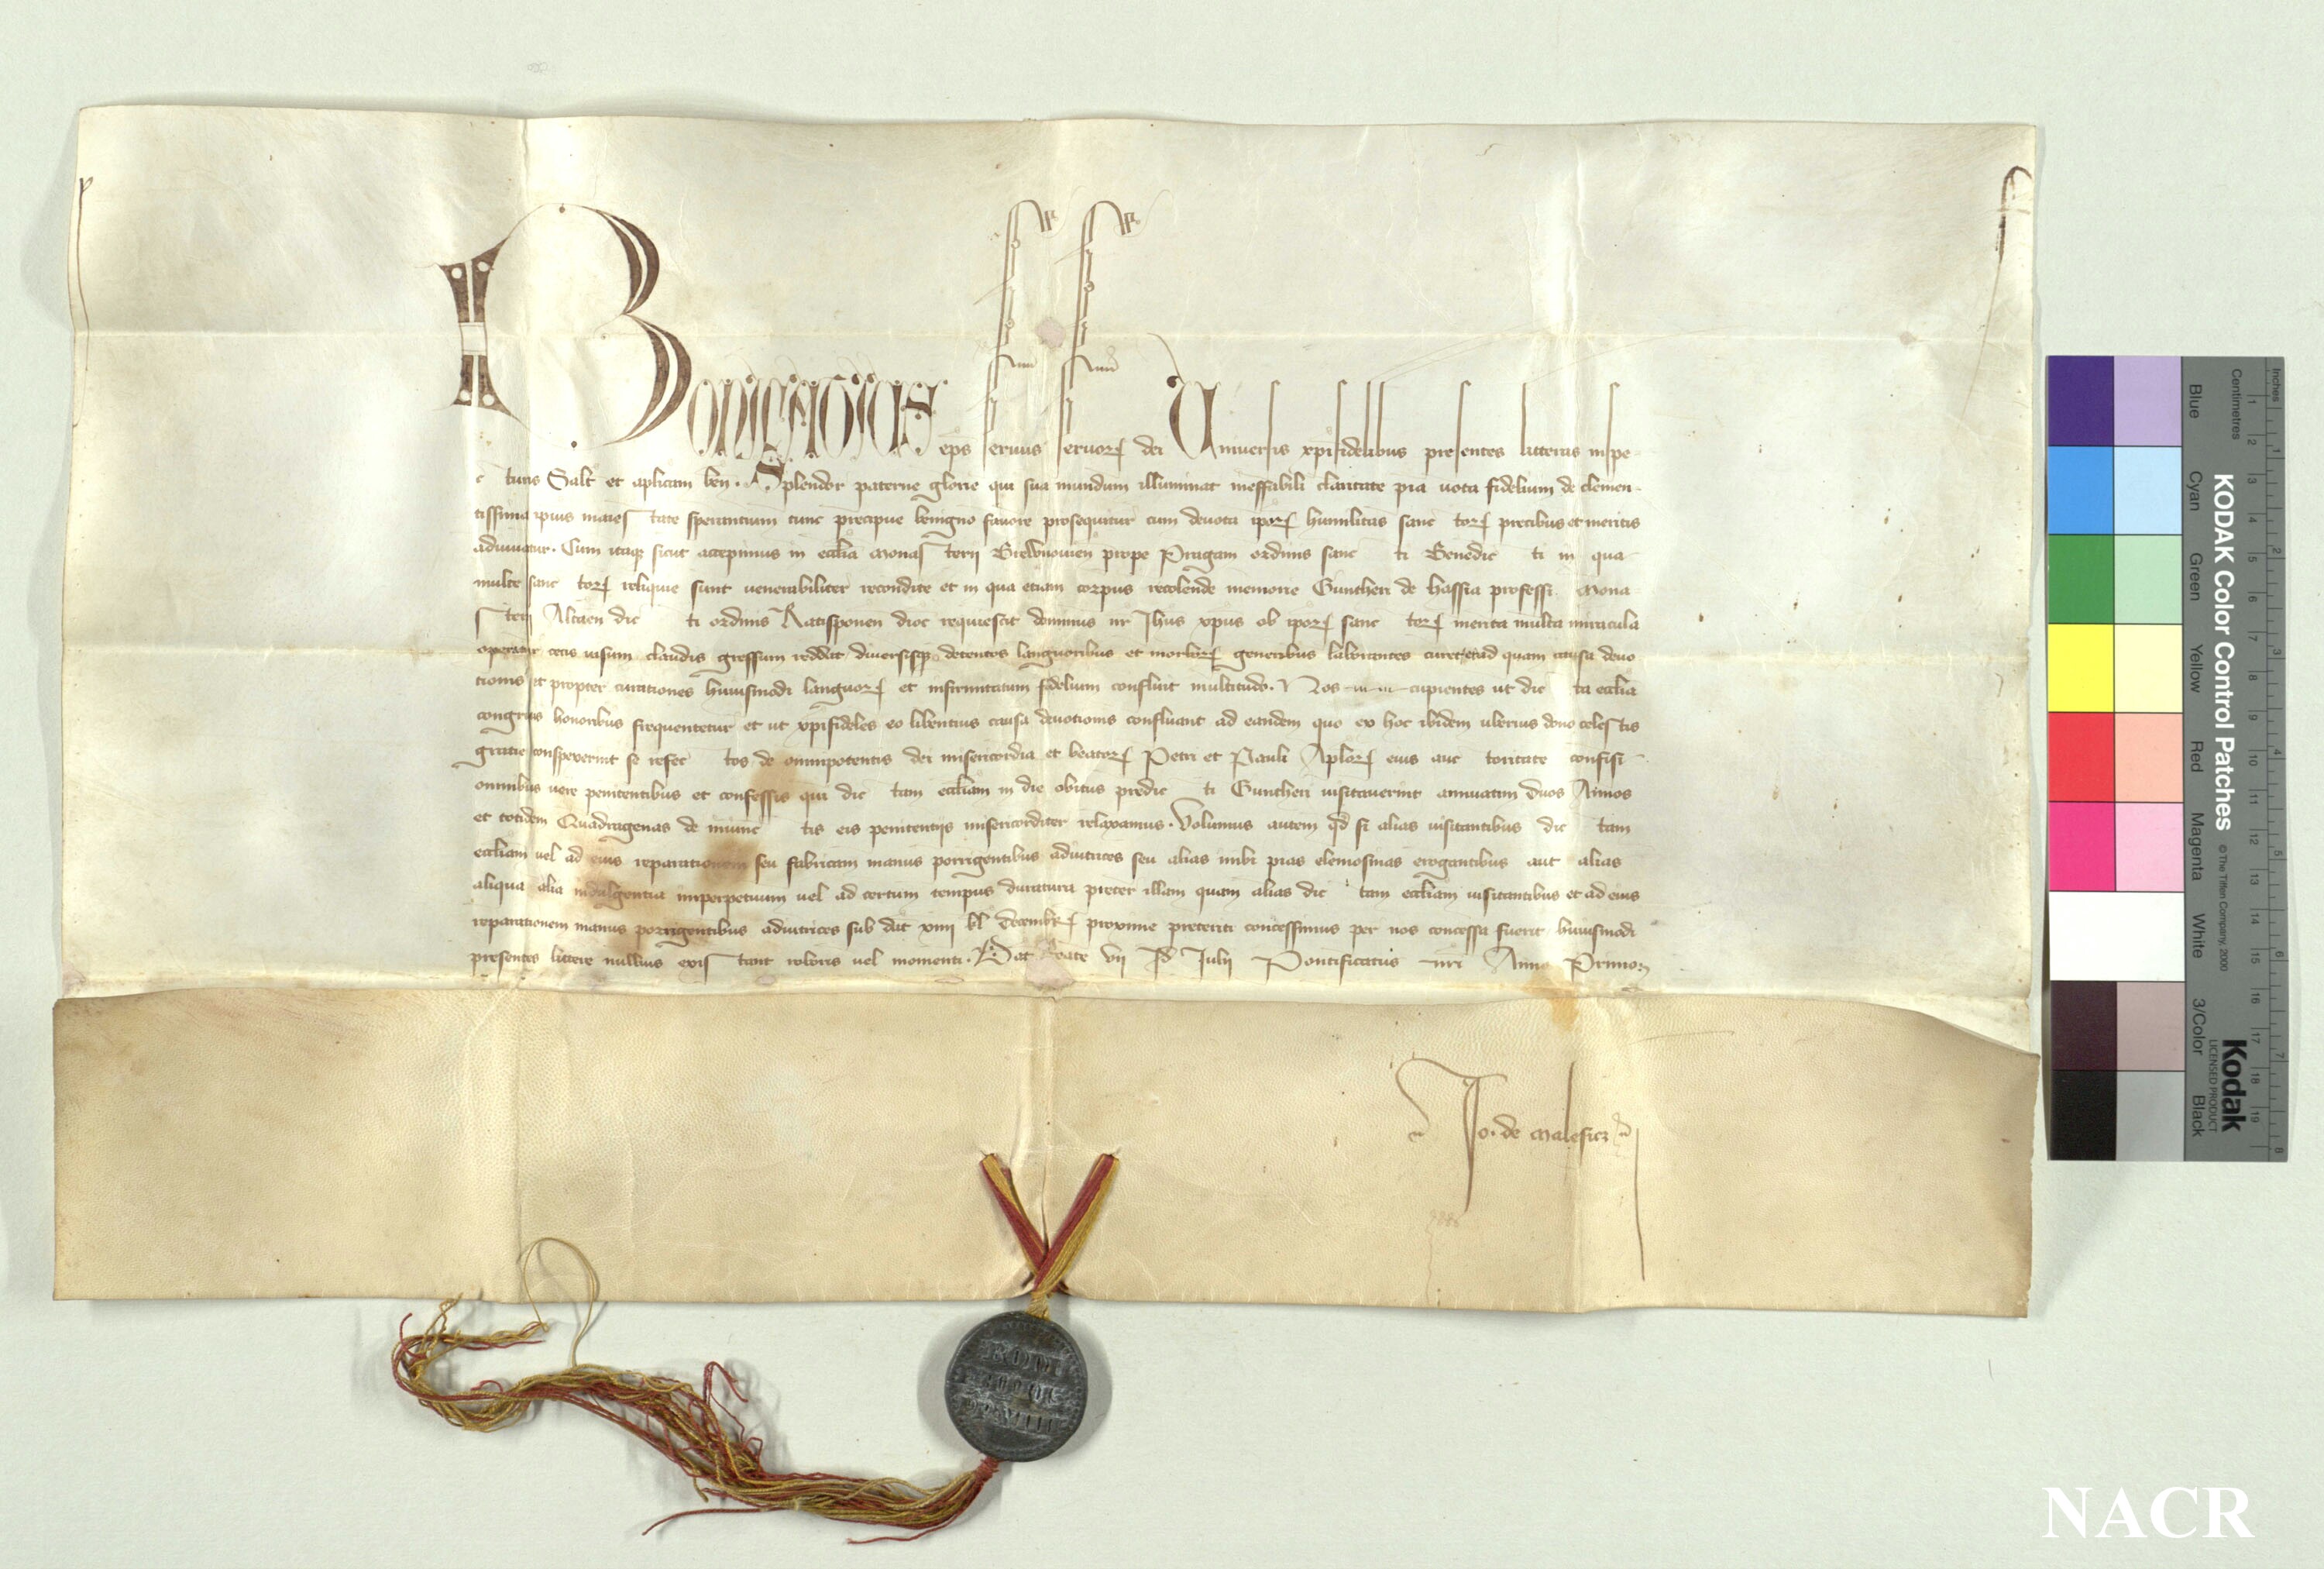 Bonifatius eps servus servorꝝ dei Universis xpifidelibus presentes litteras inspe
c turis Salt et aplicam ben. Splendor paterne glorie qui sua mundum illuminat ineffabili claritate pia vota fidelium de clemen
tissima ipius maies tate sperantium tunc precipue benigno favore prosequitur cum devota ipoꝝ humilitas sanc toꝝ precibus et meritis
adiuvatur. Cum itaqꝫ sicut accepimus in ecclia Monas terii Brewnovien prope Pragam ordinis sanc ti Benedic ti in qua
multe sanc toꝝ reliquie sunt venerabiliter recondite et in qua etiam corpus recolende memorie Guntheri de hassia professi mona
s terii Altaen dic ti ordinis Ratisponen dioc requiescit dominus nr Jhus xpus ob ipoꝝ sanc toꝝ merita multa miracula
operatur cecis visum claudis gressum reddit diversisqꝫ detentos languoribus et morboꝝ generibus laborantes curet et ad quam causa devo
tionis et propter curationes huiusmodi languoꝝ et infirmitatum fidelium confluit multitudo. Nos cupientes ut dic ta ecclia
congruis honoribus frequentetur et ut xpifideles eo libentius causa devotionis confluant ad eandem quo ex hoc ibidem uberius dono celestis
gratie conspexerint se refec tos de omnipotentis dei misericordia et beatoꝝ Petri et Pauli Aploꝝ eius auc toritate confisi
omnibus vere penitentibus et confessis qui dic tam eccliam in die obitus predic ti Guntheri visitaverint annuatim duos Annos
et totidem Quadragenas de iniunc tis eis penitentiis misericorditer relaxamus. Volumus autem qd si alias visitantibus dic tam
eccliam vel ad eius reparationem seu fabricam manus porrigentibus adiutrices seu alias inibi pias elemosinas erogantibus aut alias
aliqua alia indulgentia imperpetuum vel ad certum tempus duratura preter illam quam alias dic tam eccliam visitantibus et ad eius
reparationem manus porrigentibus adiutrices sub dat xiiii kl decembꝝ proxime preteriti concessimus per nos concessa fuerit huiusmodi
presentes littere nullius exis tant roboris vel momenti. Dat Reate vij Id Julij Pontificatus nri Anno Primo
Jo. de Malesicz
KODAK Color Control Patches © The Tiffen Company, 2000
Kodak
LICENSED PRODUCT
Inches 1 2 3 4 5 6 7 8
Centimetres 1 2 3 4 5 6 7 8 9 10 11 12 13 14 15 16 17 18 19
Blue Cyan Green Yellow Red Magenta White 3/Color Black
NACR